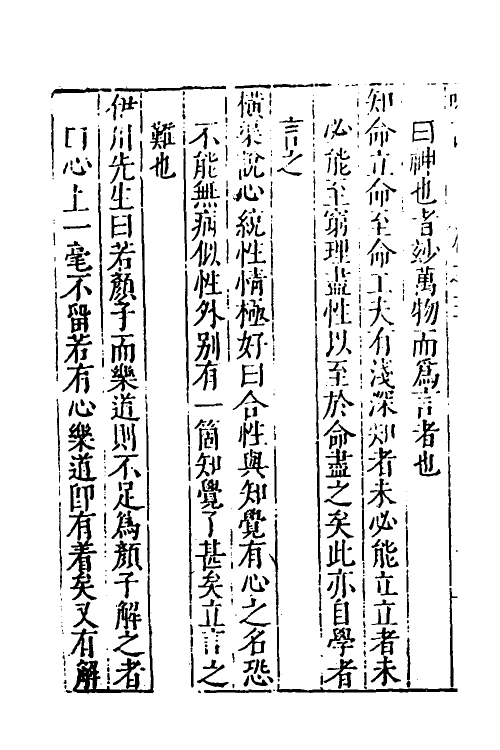 曰神也者妙萬物而爲言者也
知命立命至命工夫有淺深知者未必能立立者未
必能至窮理盡性以至於命盡之矣此亦自學者
言之
橫渠說心統性情極好曰合性與知覺有心之名恐
不能無病似性外别有一箇知覺了甚矣立言之
難也
伊川先生曰若顏子而樂道則不足爲顏子解之者
曰心上一毫不留若有心樂道卽有着矣又有解